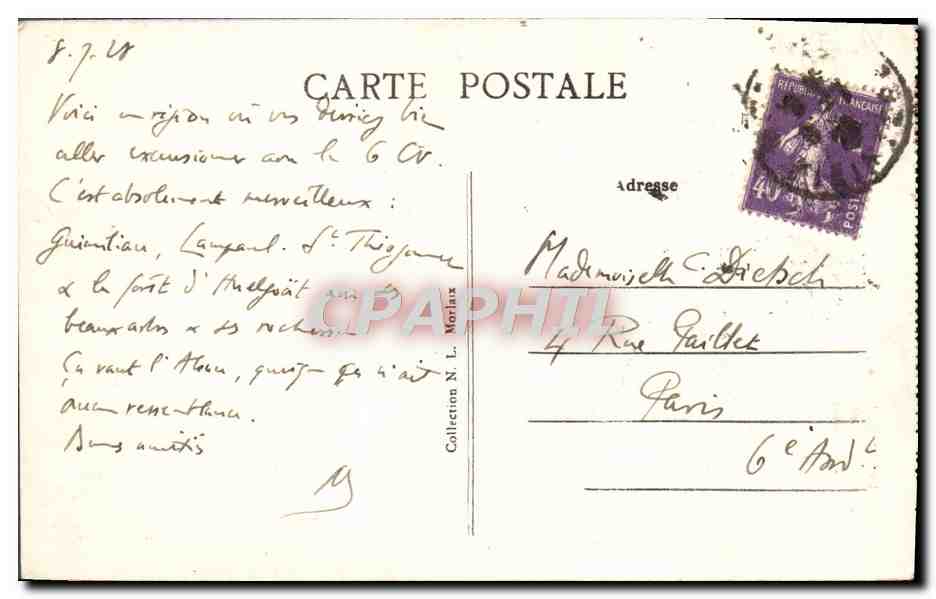 8.7.28
CARTE POSTALE
Voici un région où vous devriez bien
aller excursionner avec la 6 CV.
C'est absolument merveilleux :
Guimiliau, Lampaul. St. Thégonnec
& la forêt d'Huelgoat avec ses
beaux arbres & ses rochers.
Ça vaut l'Alsace, quoique ça n'ait
aucun ressemblance.
Bonnes amitiés
Adresse
Mademoiselle C. Dietsch
4 Rue
Paris
6e Arrdt.
Collection N. L. Morlaix
REPUBLIQUE FRANCAISE
40
POSTES
CPAPHIL